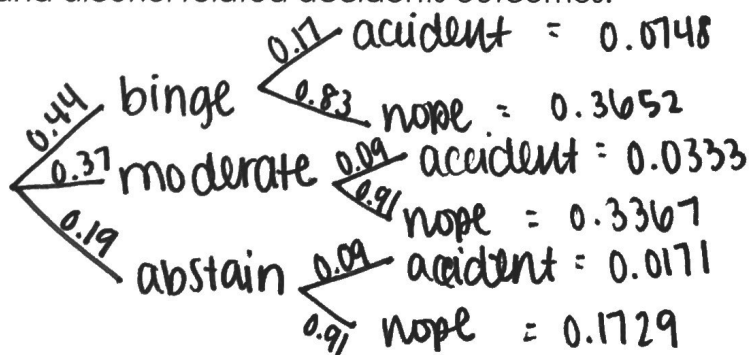 and alcohol related accidents outcomes.
0.17 accident = 0.0748
0.44 binge
0.83 nope = 0.3652
0.37 moderate 0.09 accident = 0.0333
0.91 nope = 0.3367
0.19 abstain 0.09 accident = 0.0171
0.91 nope = 0.1729